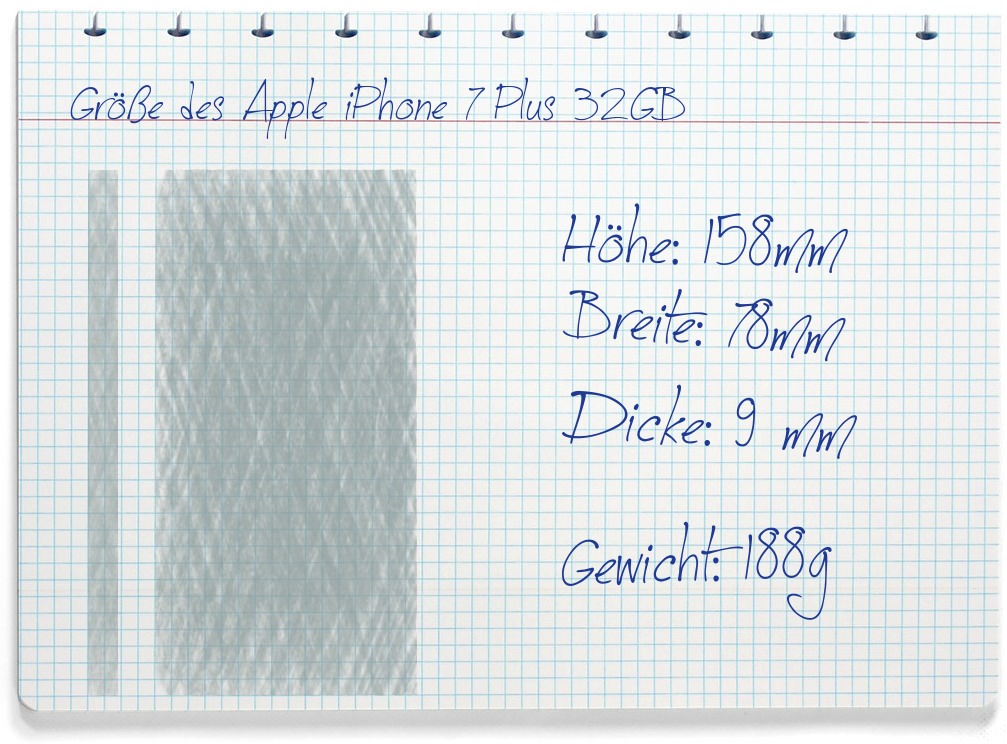 Größe des Apple iPhone 7 Plus 32GB
Höhe: 158mm
Breite: 78mm
Dicke: 9 mm
Gewicht: 188g